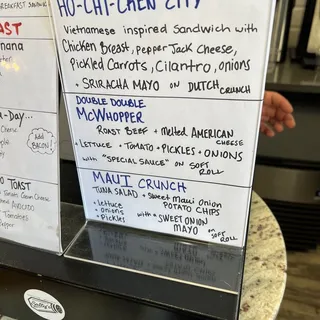 BREAKFAST SANDWICH
AST
nana
a-Day...
Cheese
Add
BACON!
TOAST
Tomato Cream Cheese
AVOCADO
Tomatoes
Pepper
HO-CHI-CHEN CITY
Vietnamese inspired Sandwich with
Chicken Breast, Pepper Jack Cheese,
Pickled Carrots, Cilantro, onions
+ SRIRACHA MAYO on DUTCH CRUNCH
DOUBLE DOUBLE
McWHOPPER
ROAST BEEF + Melted AMERICAN
CHEESE
• LETTUCE • TOMATO • PICKLES + ONIONS
with "SPECIAL SAUCE" on SOFT
ROLL
MAUI CRUNCH
TUNA SALAD + Sweet Maui Onion
POTATO CHIPS
• lettuce
• onions
• Pickles
with • SWEET ONION
MAYO on SOFT
ROLL